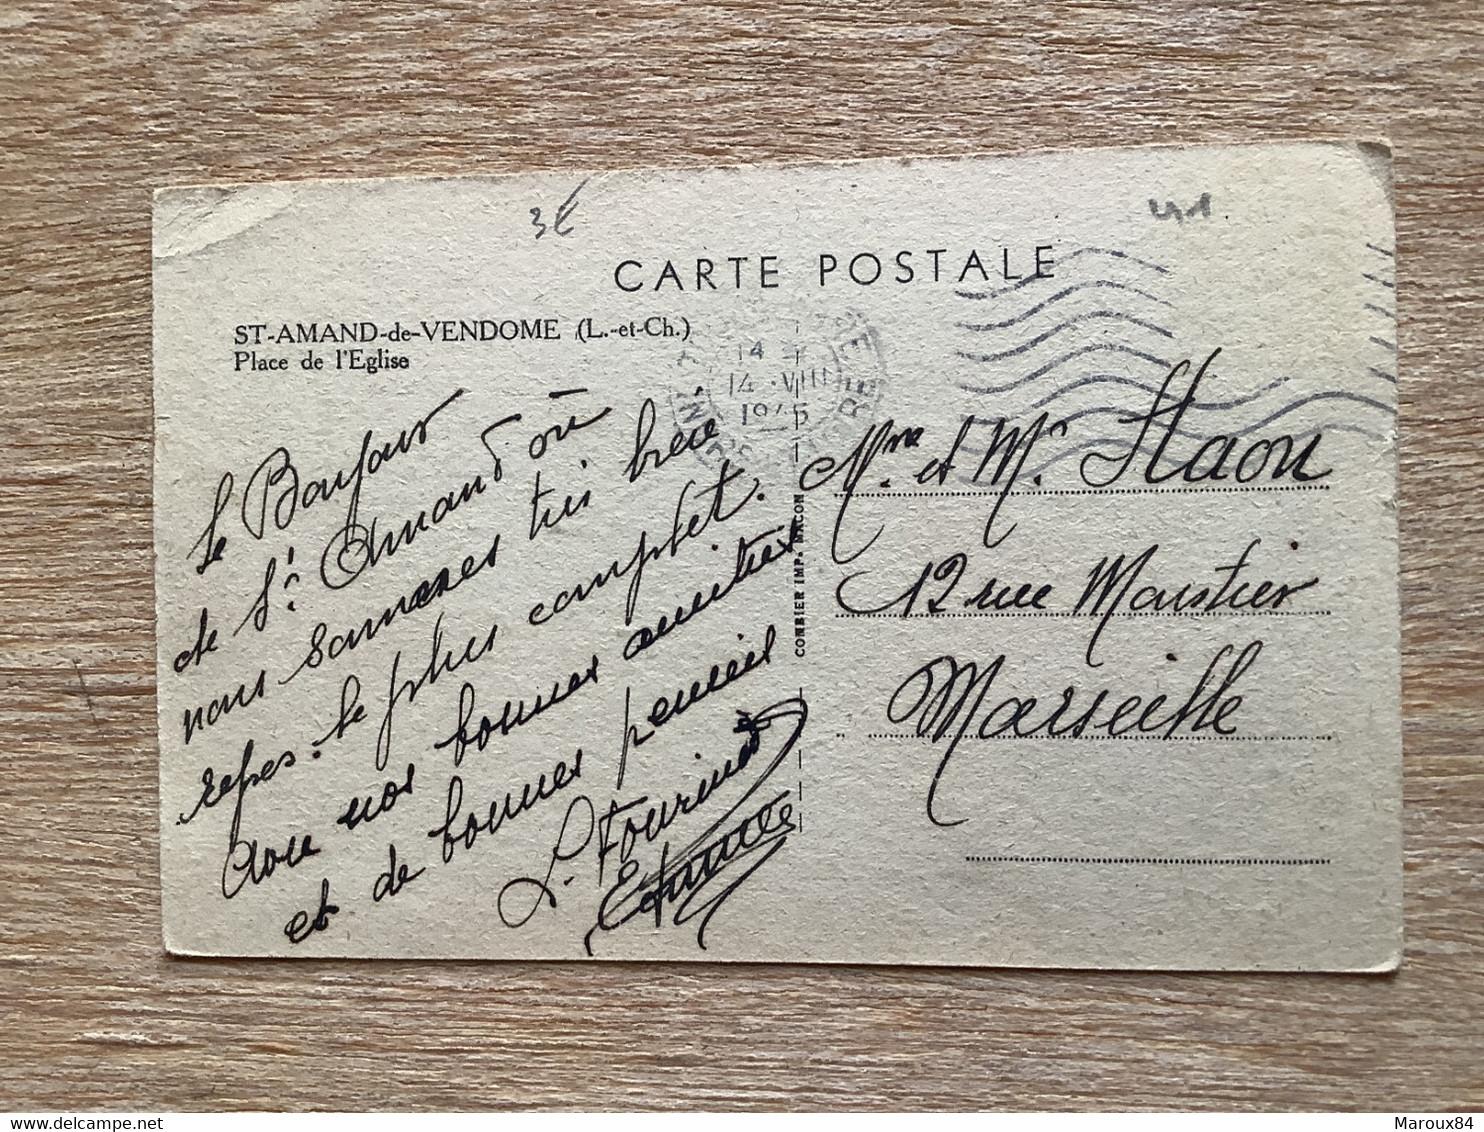 3€
41.
CARTE POSTALE
ST-AMAND-de-VENDOME (L.-et-Ch.)
Place de l'Eglise
14
14 VIII
1945
Le Bonjour
de St. Amand où
nous sommes très brève
repos. le plus complet.
Avec nos bonnes amitiés
et de bonnes pensées
L. Fourinet
COMBIER IMP. MACON
Mme et Mr. Staon
12 rue Moustier
Marseille
Maroux84